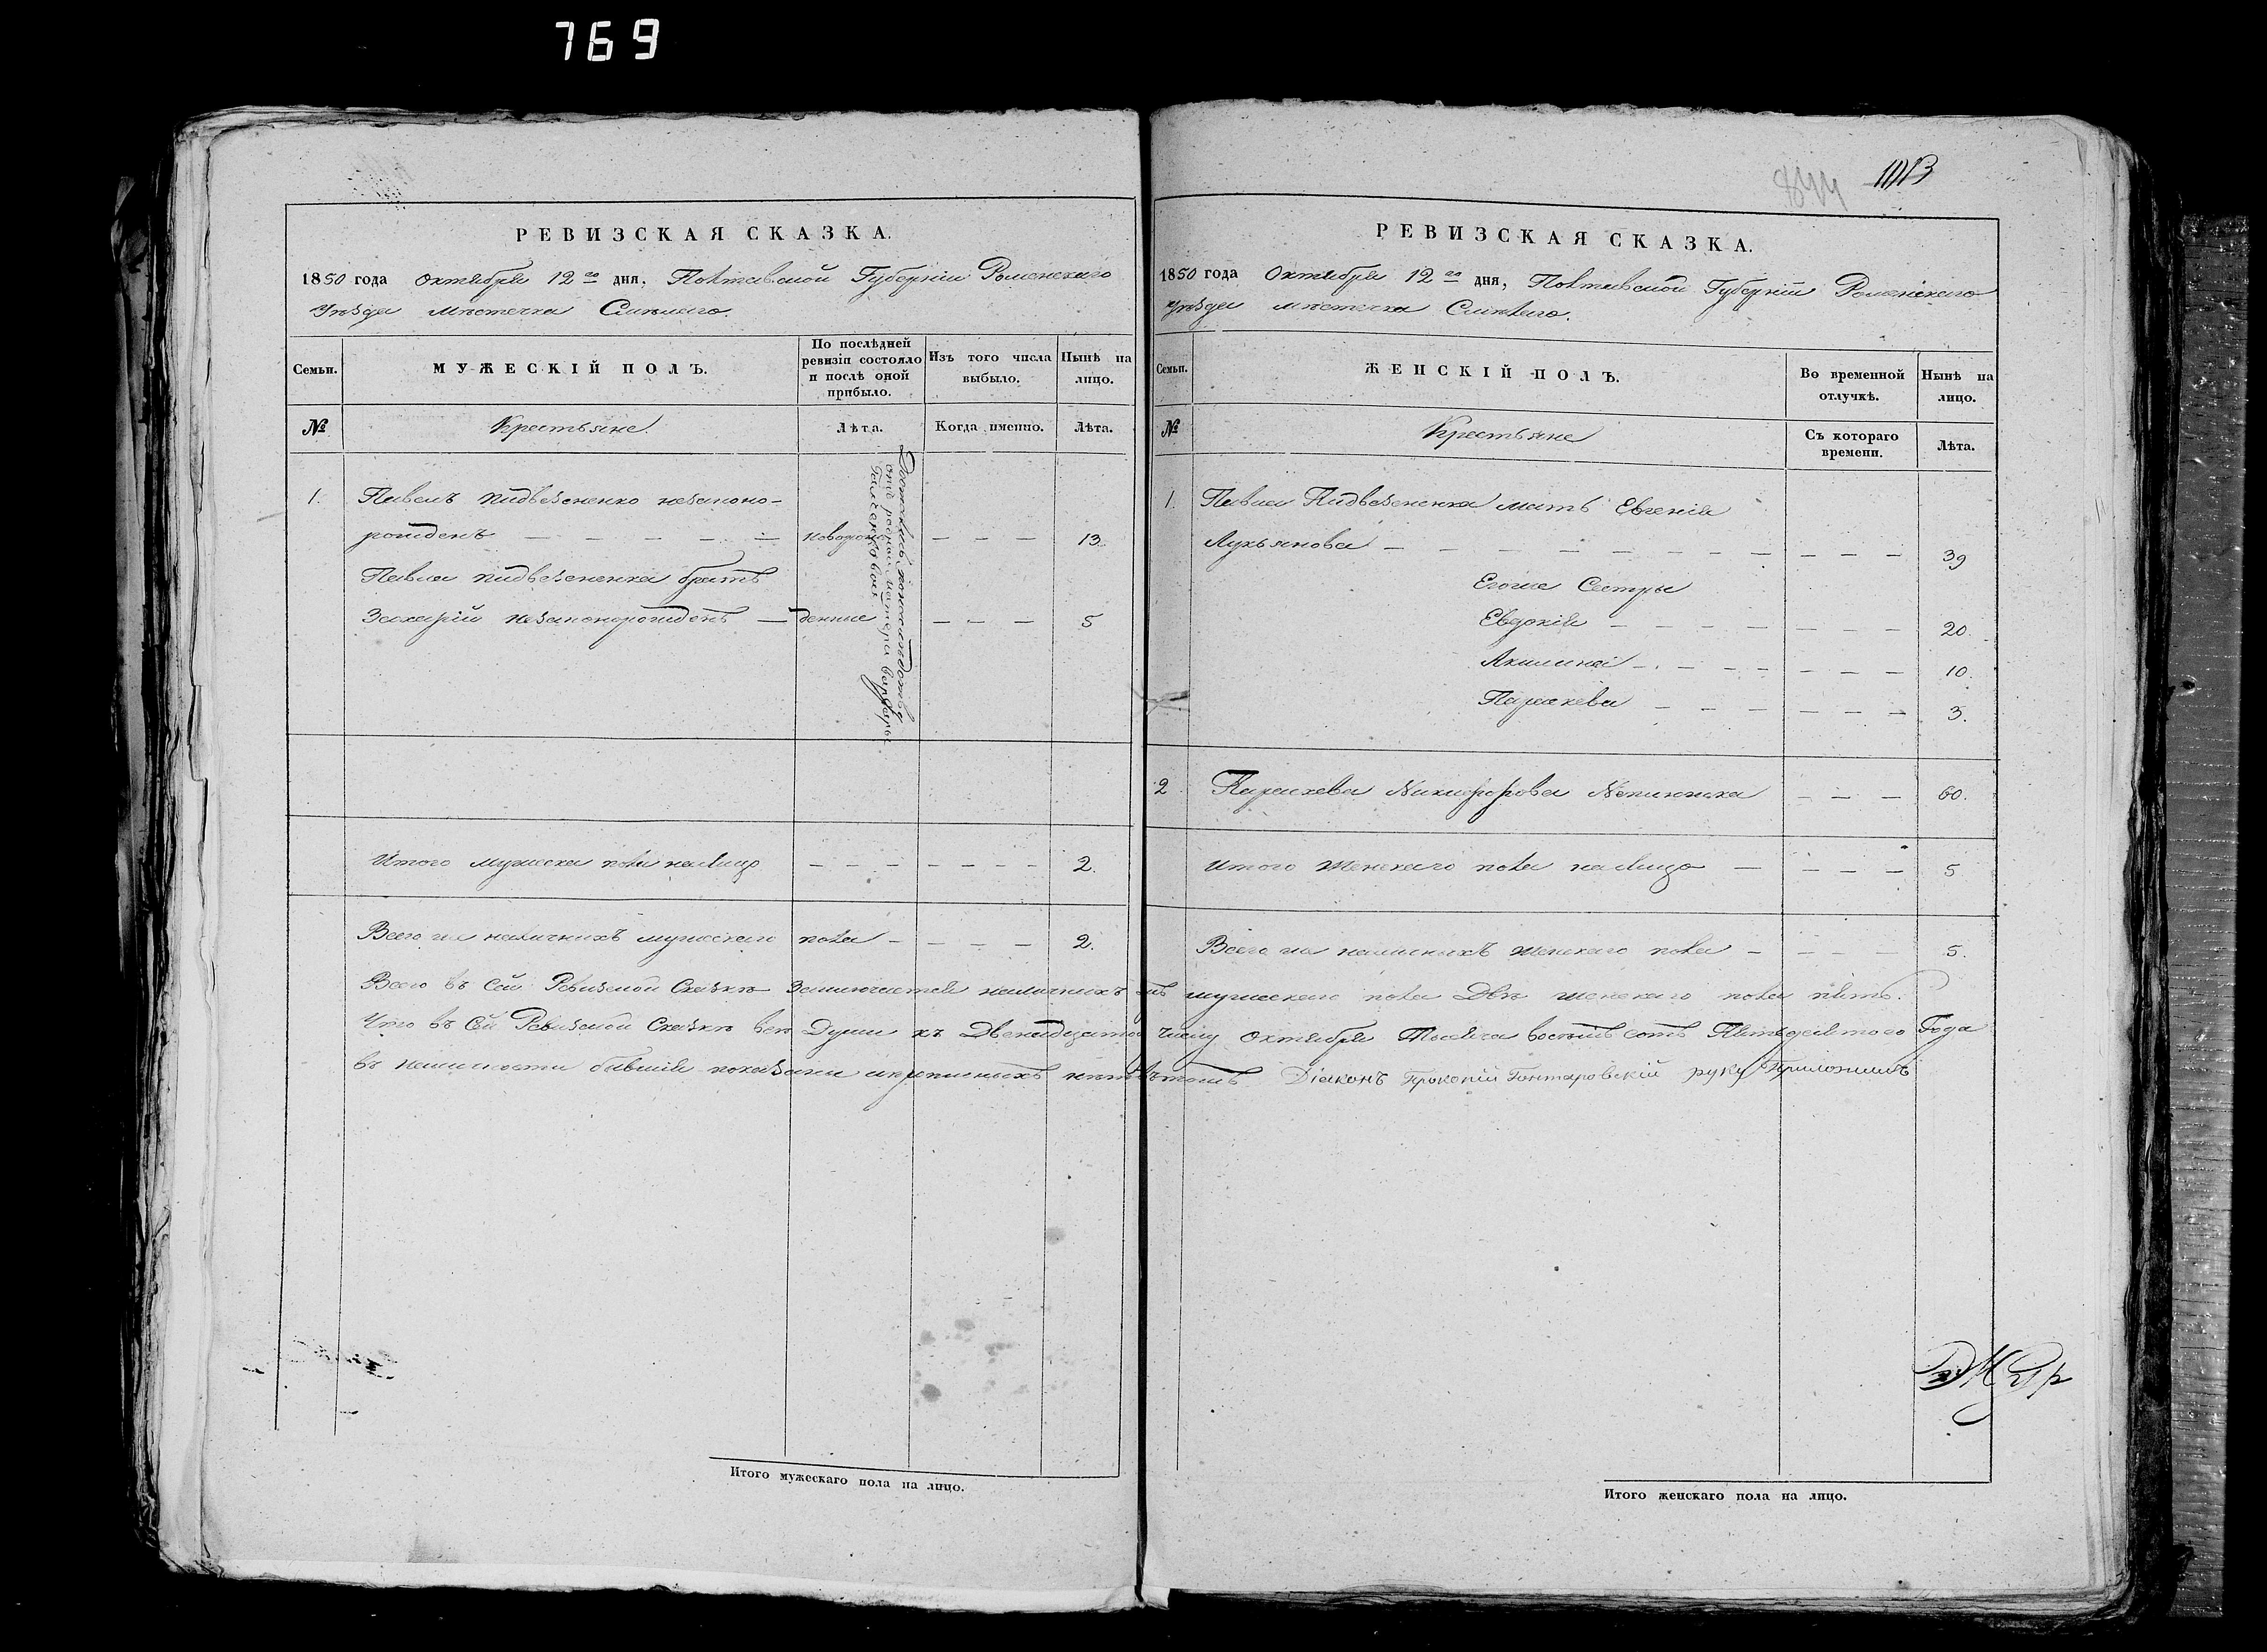 769
844
РЕВИЗСКАЯ СКАЗКА.
1850 года Октября 12го дня, Полтавской Губерніи Роменскаго
Уѣзда мѣстечка Смѣлаго.
Семьи.
МУЖЕСКІЙ ПОЛЪ.
По послѣдней ревизіи состояло и послѣ оной прибыло.
Изъ того числа выбыло.
Нынѣ на лицо.
№
Крестьяне.
Лѣта.
Когда именно.
Лѣта.
1. Павелъ Пидвезененко незаконо-
рожденъ — — — — — новорож — — — 13.
Павла Пидвезененка братъ
Захарій незаконорожденъ — денные — — — 5
Достались
отъ родной матери Варвары
Итого мужеска пола налицо — — — — — — — 2.
Всего же наличныхъ мужескаго пола — — — — 2.
РЕВИЗСКАЯ СКАЗКА.
1850 года Октября 12го дня, Полтавской Губерніи Роменскаго
Уѣзда мѣстечка Смѣлаго.
Семьи.
ЖЕНСКІЙ ПОЛЪ.
Во временной отлучкѣ.
Нынѣ на лицо.
№
Крестьяне
Съ котораго времени.
Лѣта.
1. Павла Пидвезененка мать Евгенія
Лукьянова — — — — — — — — — — — 39
Егоже Сестры
Евдокія — — — — — — — 20.
Акилина — — — — — — — 10.
Параскева — — — — — — 3.
2. Параскева Никифорова — — — 60.
Итого женскаго пола налицо — — — — 5
Всего же наличныхъ женскаго пола — — — — 5.
Всего въ Сей Ревизской Сказкѣ Заключается наличныхъ мужескаго пола Двѣ женскаго пола пять.
Что въ Сей Ревизской Сказкѣ всѣ Души къ Двенадцатому числу Октября Тысяча восемь сотъ Пятедесятого Года
въ наличности бывшія показаны и прописныхъ нѣтъ вътомъ Діаконъ Прокопій Гонтаровскій руку Приложилъ
Итого мужескаго пола на лицо.
Итого женскаго пола на лицо.